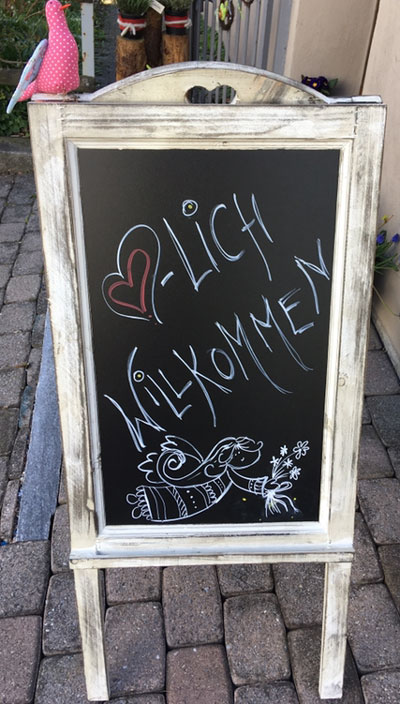 ❤-LICH
WILLKOMMEN